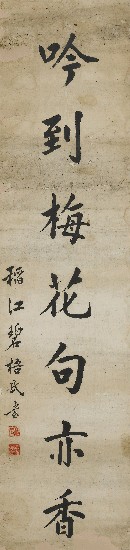 吟到梅花句亦香
稻江碧梧民書